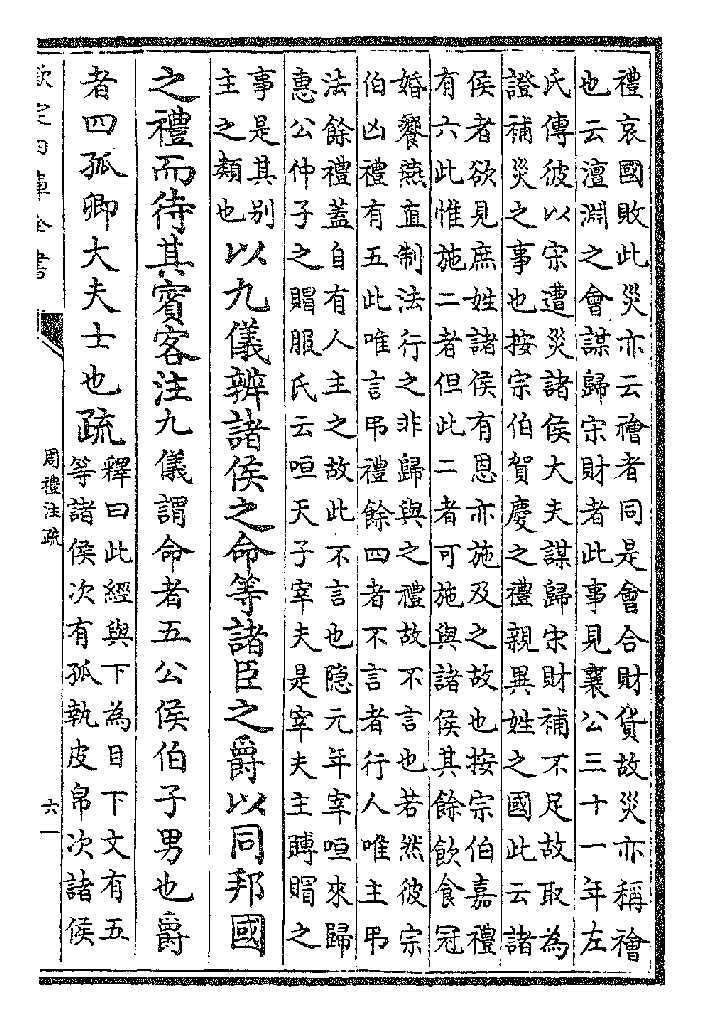 禮哀國敗此災亦云禬者同是會合財貨故災亦稱禬
也云澶淵之會謀歸宋財者此事見襄公三十一年左
氏傳彼以宋遭災諸侯大夫謀歸宋財補不足故取為
證補災之事也按宗伯賀慶之禮親異姓之國此云諸
侯者欲見庶姓諸侯有恩亦施及之故也按宗伯嘉禮
有六此惟施二者但此二者可施與諸侯其餘飲食冠
婚饗燕直制法行之非歸與之禮故不言也若然彼宗
伯凶禮有五此唯言吊禮餘四者不言者行人唯主吊
法餘禮蓋自有人主之故此不言也隠元年宰咺來歸
惠公仲子之賵服氏云咺天子宰夫是宰夫主賻賵之
事是其别
主之類也
以九儀辨諸侯之命等諸臣之爵以同邦國
之禮而待其賓客注九儀謂命者五公侯伯子男也爵
者四孤卿大夫士也疏
釋曰此經與下為目下文有五
等諸侯次有孤執皮帛次諸侯
欽定四庫全書
周禮注疏
六一